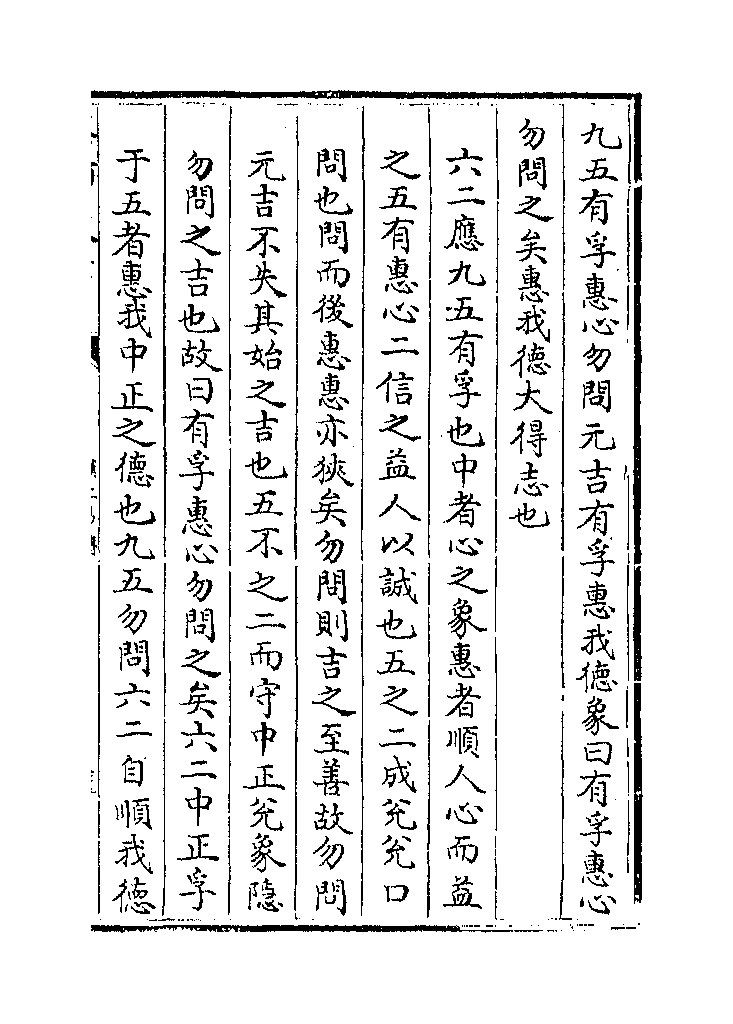 九五有孚惠心勿問元吉有孚惠我德象曰有孚惠心
勿問之矣惠我德大得志也
六二應九五有孚也中者心之象惠者順人心而益
之五有惠心二信之益人以誠也五之二成兊兊口
問也問而後惠惠亦狹矣勿問則吉之至善故勿問
元吉不失其始之吉也五不之二而守中正兊象隱
勿問之吉也故曰有孚惠心勿問之矣六二中正孚
于五者惠我中正之德也九五勿問六二自順我德